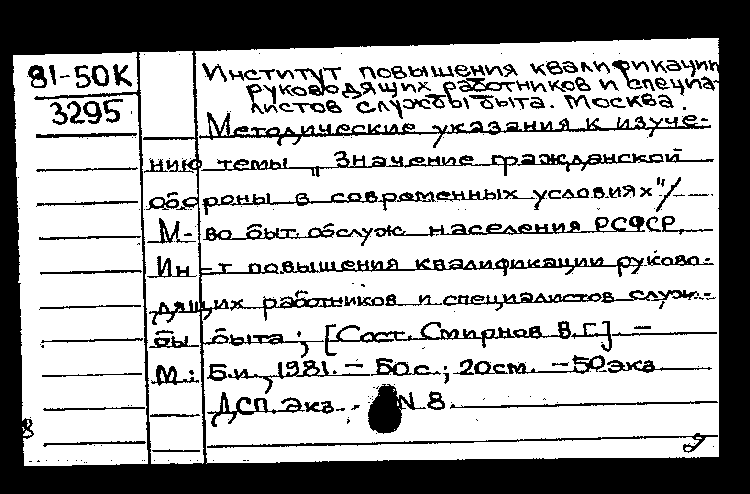 81-50К
3295
Институт повышения квалификации
руководящих работников и специа-
листов службы быта. Москва.
Методические указания к изуче-
нию темы „Значение гражданской
обороны в современных условиях"/
М-во быт. обслуж населения РСФСР,
Ин-т повышения квалификации руково-
дящих работников и специалистов служ-
бы быта; [Сост. Смирнов В.Г.] -
М.: Б.и., 1981. - 50с.; 20см. - 50экз.
ДСП. Экз. N 8.